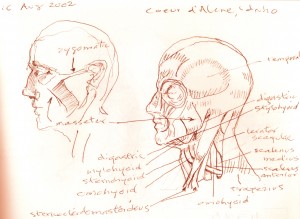 Aug 2002
Coeur d'Alene, Idaho
zygomatic
masseter
temporal
digastric
stylohyoid
levator
scapulae
scalenus
medius
scalenus
anterior
trapezius
omohyoid
digastric
mylohyoid
sternohyoid
omohyoid
sternocleidomastoideus